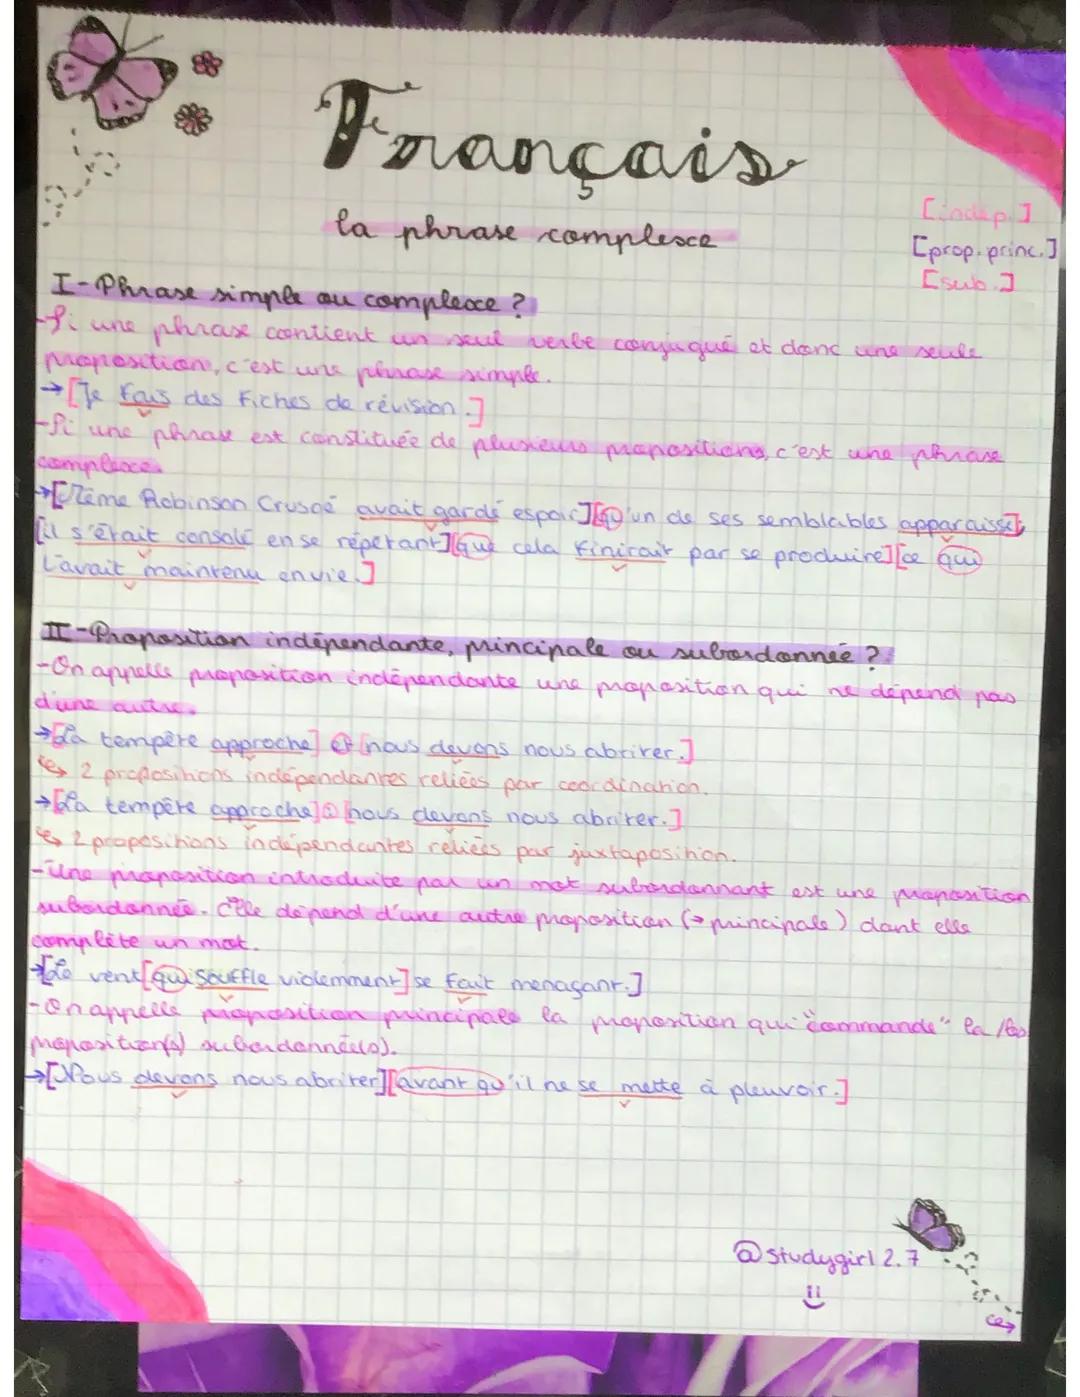 Français
la phrase complexe
[indép.]
[prop. princ.]
[sub.]
I-Phrase simple ou complexe ?
-Si une phrase contient un seul verbe conjugué et donc une seule
proposition, c'est une phrase simple.
→[Je fais des fiches de révision.]
-Si une phrase est constituée de plusieurs propositions, c'est une phrase
complexe.
→[Même Robinson Crusoé avait gardé espoir][qu'un de ses semblables apparaisse],
[il s'était consolé en se répétant][que cela finirait par se produire][ce qui
l'avait maintenu envie.]
II-Proposition indépendante, principale ou subordonnée ?
-On appelle proposition indépendante une proposition qui ne dépend pas
d'une autre.
→[La tempête approche] et [nous devons nous abriter.]
↳ 2 propositions indépendantes reliées par coordination.
→[La tempête approche], [nous devons nous abriter.]
↳ 2 propositions indépendantes reliées par juxtaposition.
-Une proposition introduite par un mot subordonnant est une proposition
subordonnée. Elle dépend d'une autre proposition (→ principale) dont elle
complète un mot.
→[Le vent[qui souffle violemment] se fait menaçant.]
-On appelle proposition principale la proposition qui "commande" la/les
proposition(s) subordonnée(s).
→[Nous devons nous abriter][avant qu'il ne se mette à pleuvoir.]
@studygirl 2.7